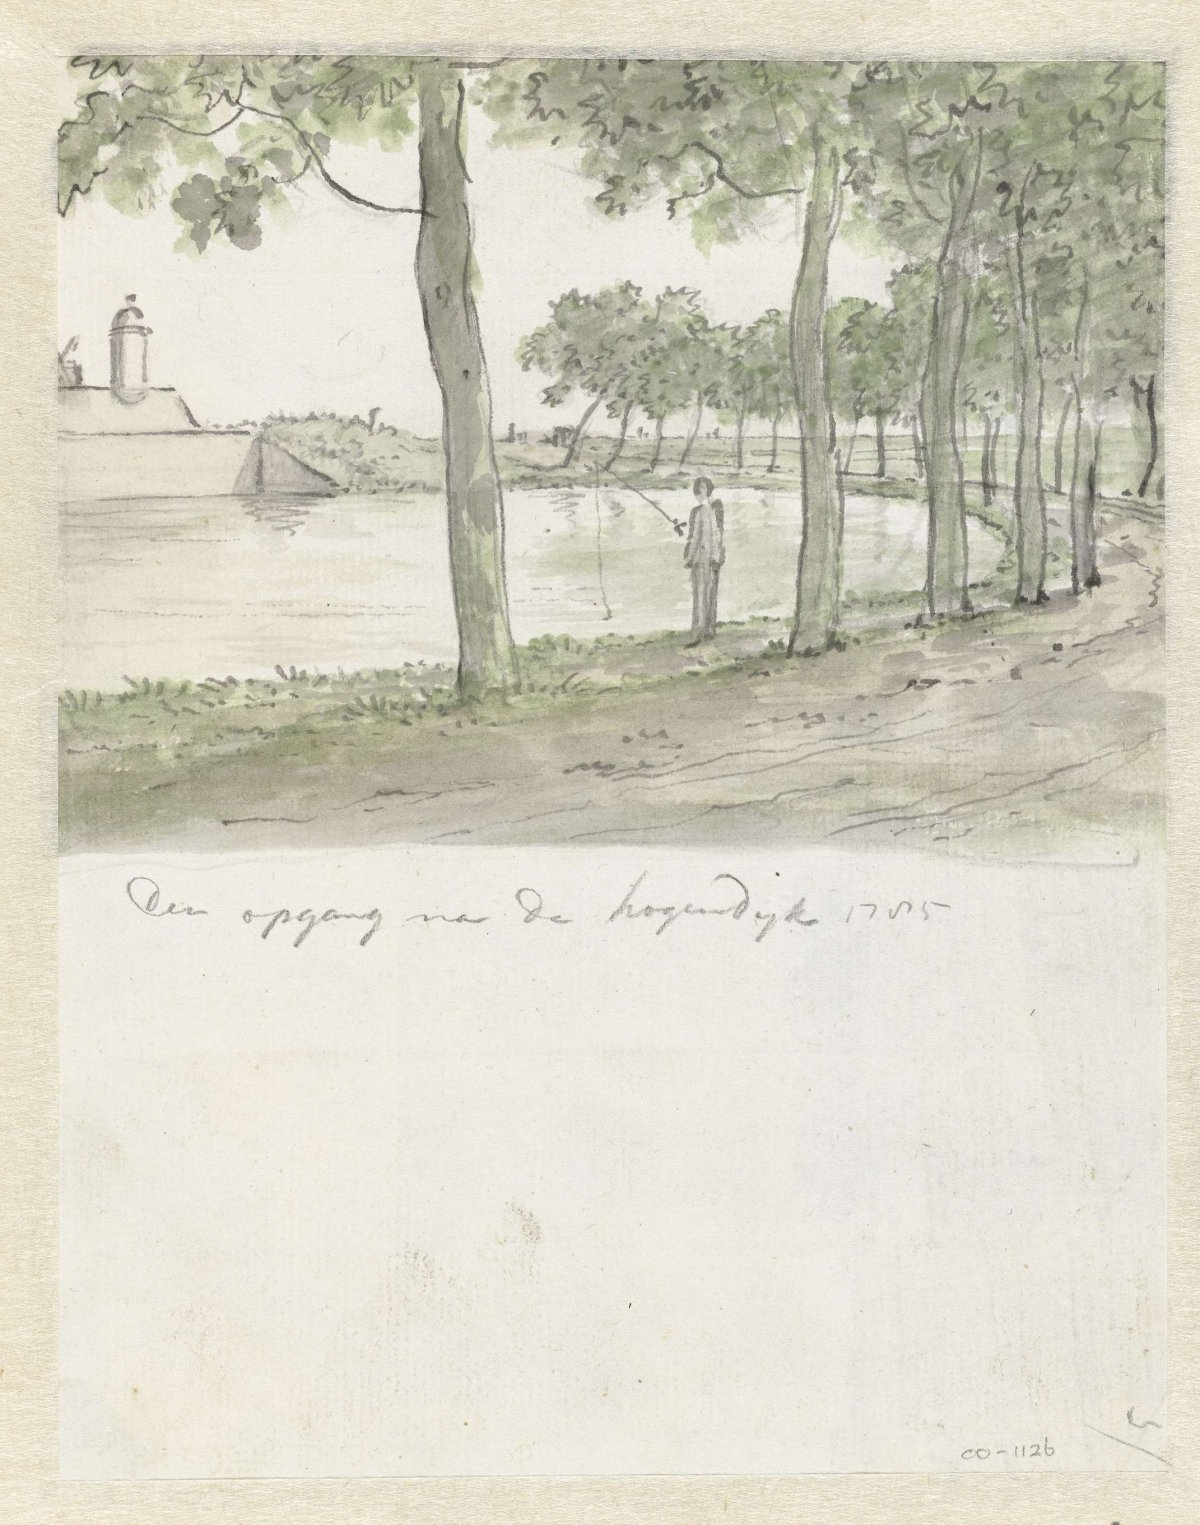 Den opgang na de hogendyk 1785
CO-1126